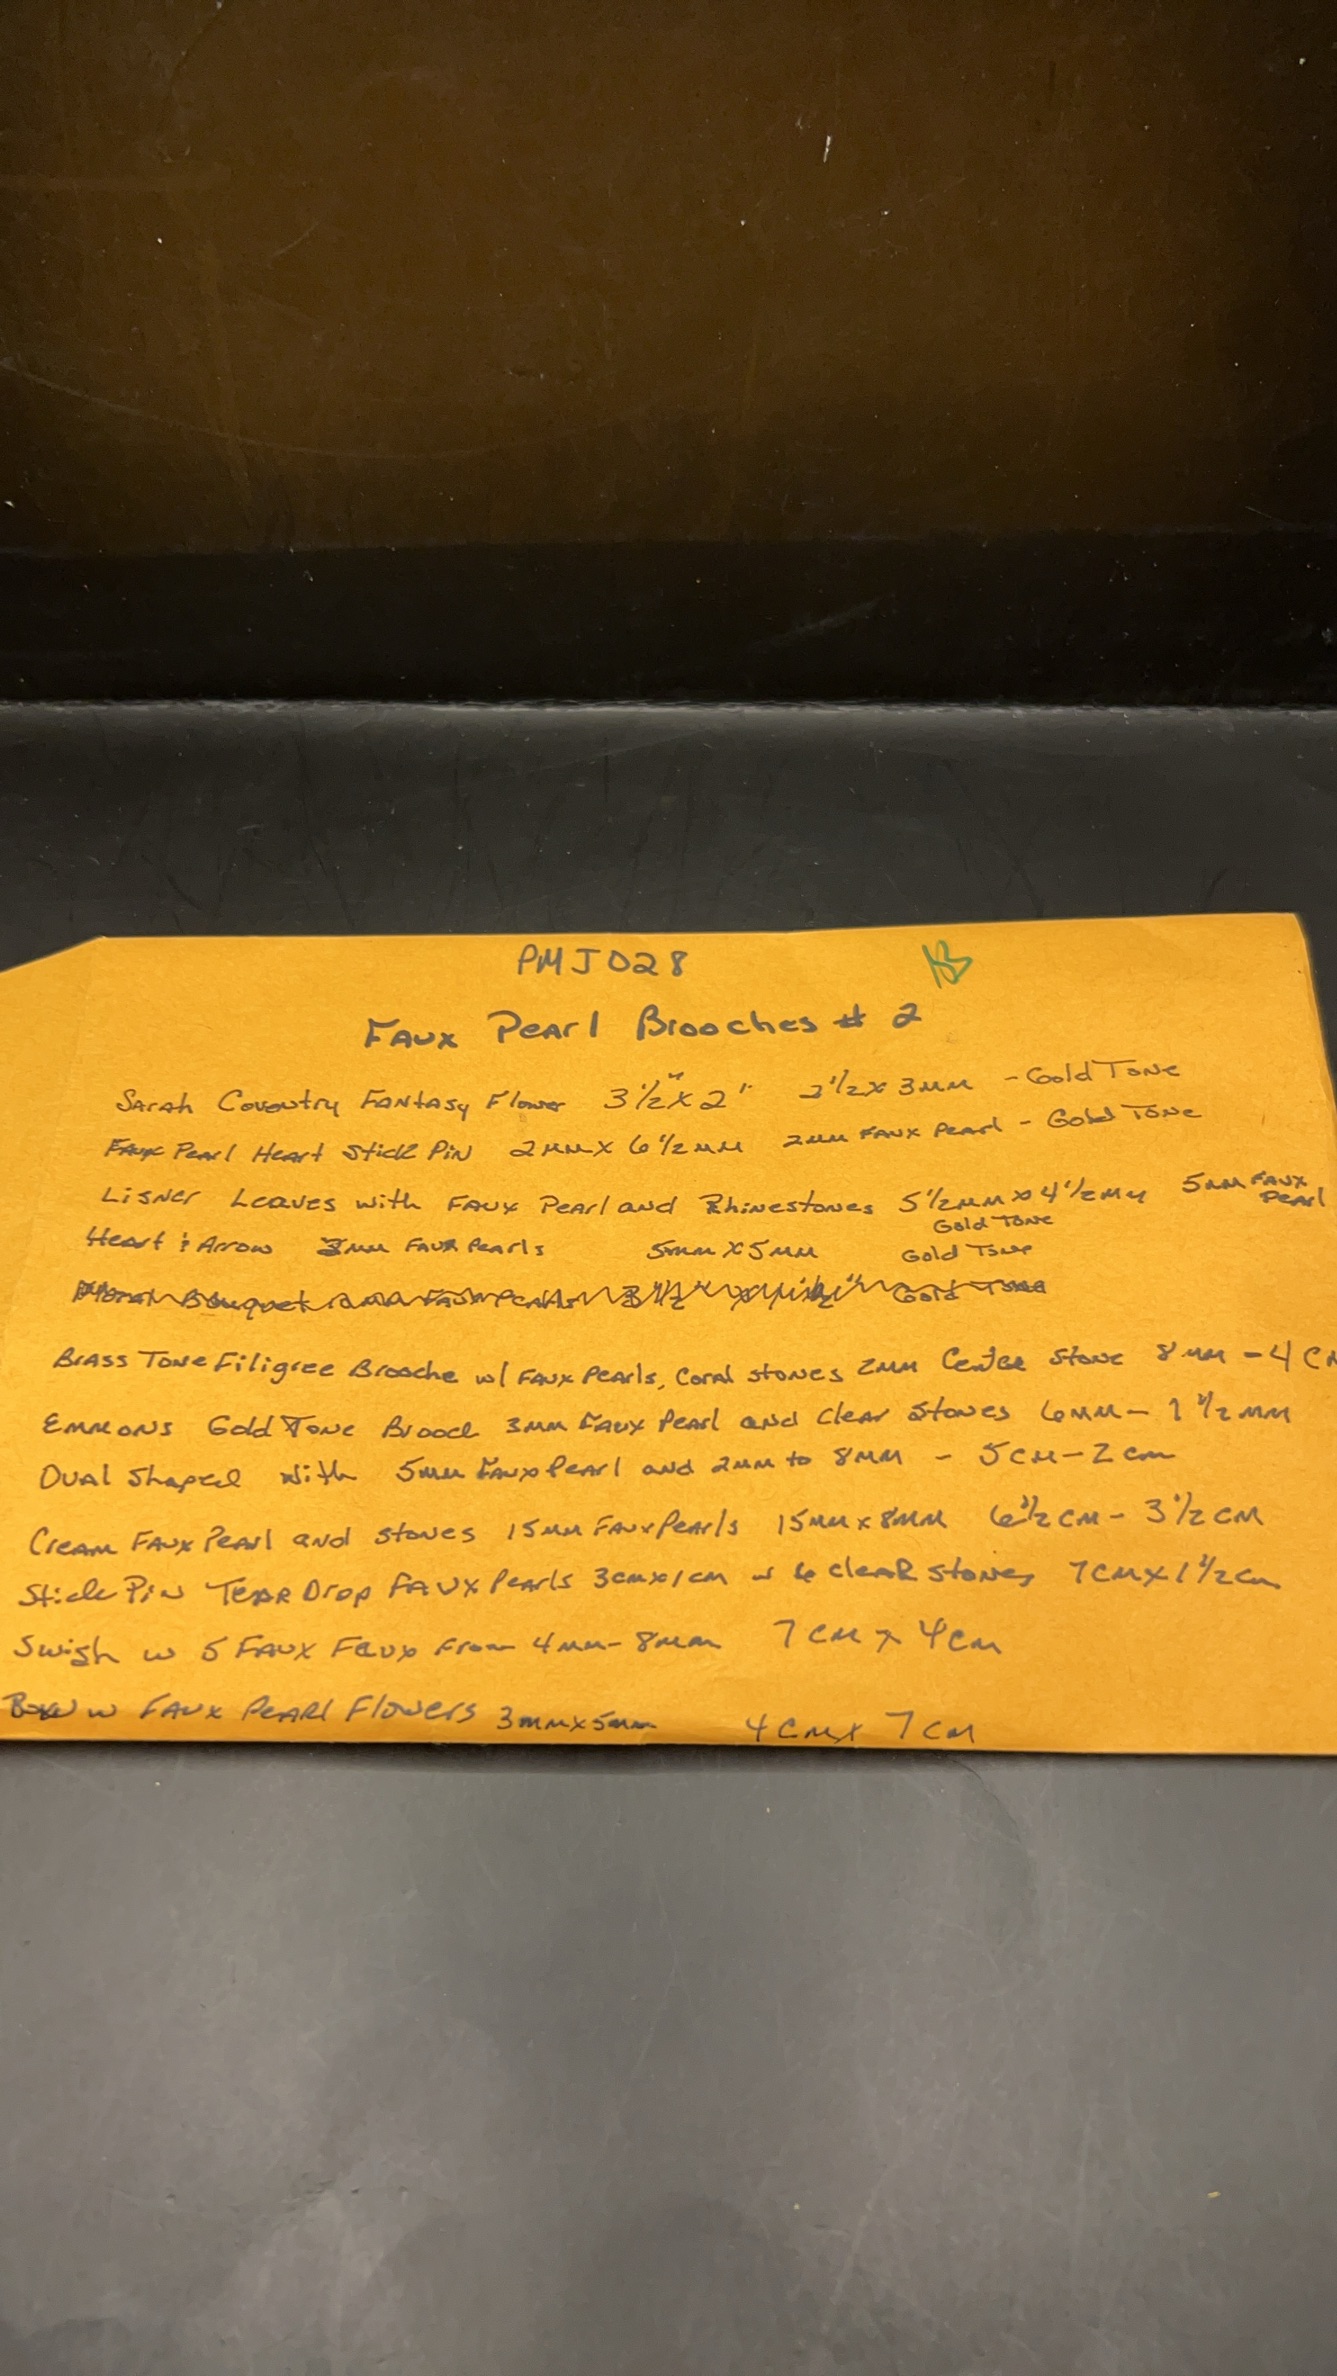 PMJ028
Faux Pearl Brooches # 2
Sarah Coventry Fantasy Flower 3 1/2" x 2" 2 1/2 x 3mm - Gold Tone
Faux Pearl Heart Stick Pin 2mm x 6 1/2mm 2mm Faux Pearl - Gold Tone
Lisner Leaves with Faux Pearl and Rhinestones 5 1/2mm x 4 1/2mm 5mm Faux Pearl
Gold Tone
Heart & Arrow 3mm Faux Pearls 5mm x 5mm Gold Tone
Floral Bouquet Faux Pearls Gold Tone
Brass Tone Filigree Brooche w/ Faux Pearls, Coral stones 2mm Center Stone 8mm - 4 CM
Emmons Gold Tone Brooch 3mm Faux Pearl and Clear Stones 6mm - 1 1/2mm
Oval Shaped with 5mm Faux Pearl and 2mm to 8mm - 5cm - 2cm
Cream Faux Pearl and stones 15mm Faux Pearls 15mm x 8mm 6 1/2 cm - 3 1/2 cm
Stick Pin Tear Drop Faux Pearls 3cm x 1cm w 6 clear stones 7cm x 1 1/2cm
Swish w 5 Faux Faux from 4mm - 8mm 7cm x 4cm
Bow w Faux Pearl Flowers 3mm x 5mm 4cm x 7cm